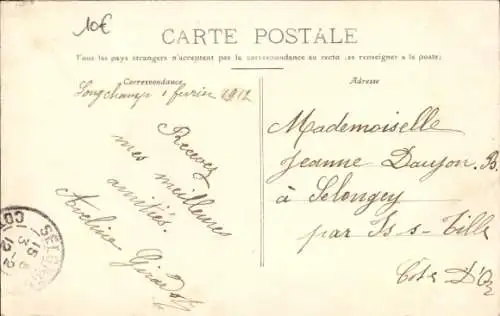 10€
CARTE POSTALE
Tous les pays étrangers n'acceptent pas la correspondance au recto (se renseigner à la poste)
Correspondance
Adresse
Longchamp 1 fevrier 1912
Recevez
mes meilleures
amitiés.
Aveline Girardot
Mademoiselle
Jeanne Dauson. B.
à Selongey
par Is-s-Tille
Côte D'Or
SELONGEY
15
3-2
12
CO